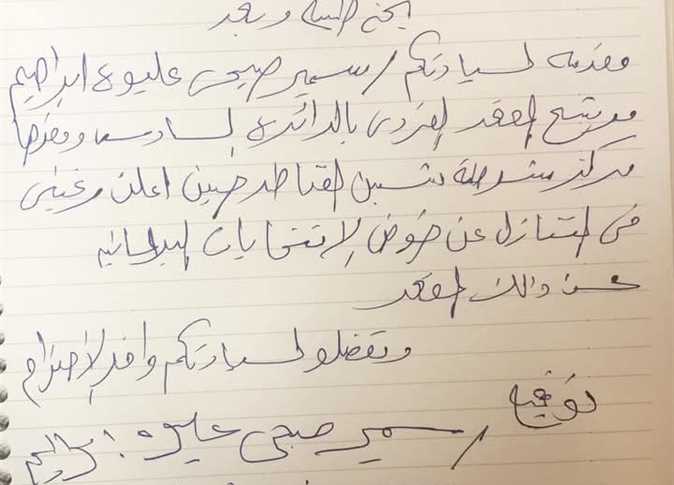 تحية طيبة وبعد
مقدمه لسيادتكم / سمير صبحى عليوه ابراهيم
مرشح المقعد الفردى بالدائره السادسه ومقرها
مركز شرطة شبين القناطر حيث اعلن رغبتى
فى التنازل عن خوض الانتخابات البرلمانيه
عن ذالك المقعد
وتفضلو لسيادتكم وافر الاحترام
توقيع
/ سمير صبحى عليوه ابراهيم